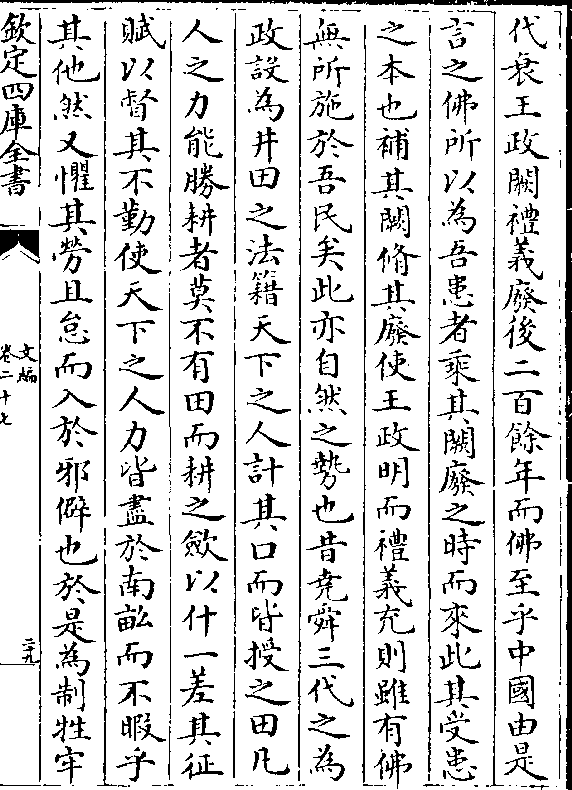 代衰王政闕禮義廢後二百餘年而佛至乎中國由是
言之佛所以為吾患者乘其闕廢之時而來此其受患
之本也補其闕脩其廢使王政明而禮義充則雖有佛
無所施於吾民矣此亦自然之勢也昔堯舜三代之為
政設為井田之法籍天下之人計其口而皆授之田凡
人之力能勝耕者莫不有田而耕之斂以什一差其征
賦以督其不勤使天下之人力皆盡於南畝而不暇乎
其他然又懼其勞且怠而入於邪僻也於是為制牲牢
欽定四庫全書
文編
卷二十七
二九